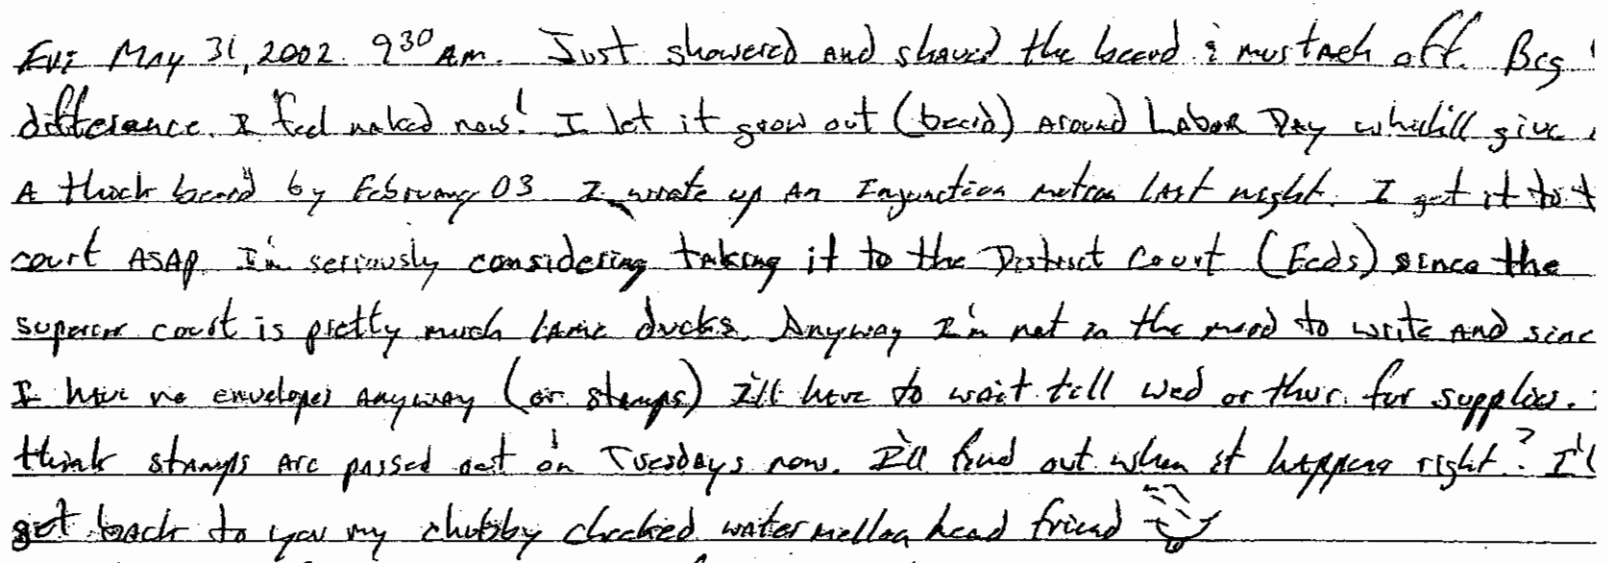 Fri May 31, 2002. 930 AM. Just showered and shaved the beard & mustach off. Big
differance. I feel naked now! I let it grow out (beard) around Labor Day which'll give
a thick beard by February 03. I wrote up an Injunction motion last night. I get it to t
court ASAP. I'm seriously considering taking it to the District Court (Feds) since the
superior court is pretty much lame ducks. Anyway I'm not in the mood to write and sinc
I have no envelopes anyway (or stamps) I'll have to wait till wed or thur. for supplies.
think stamps are passed out on Tuesdays now. I'll find out when it happens right? I'l
get back to you my chubby cheeked watermellon head friend